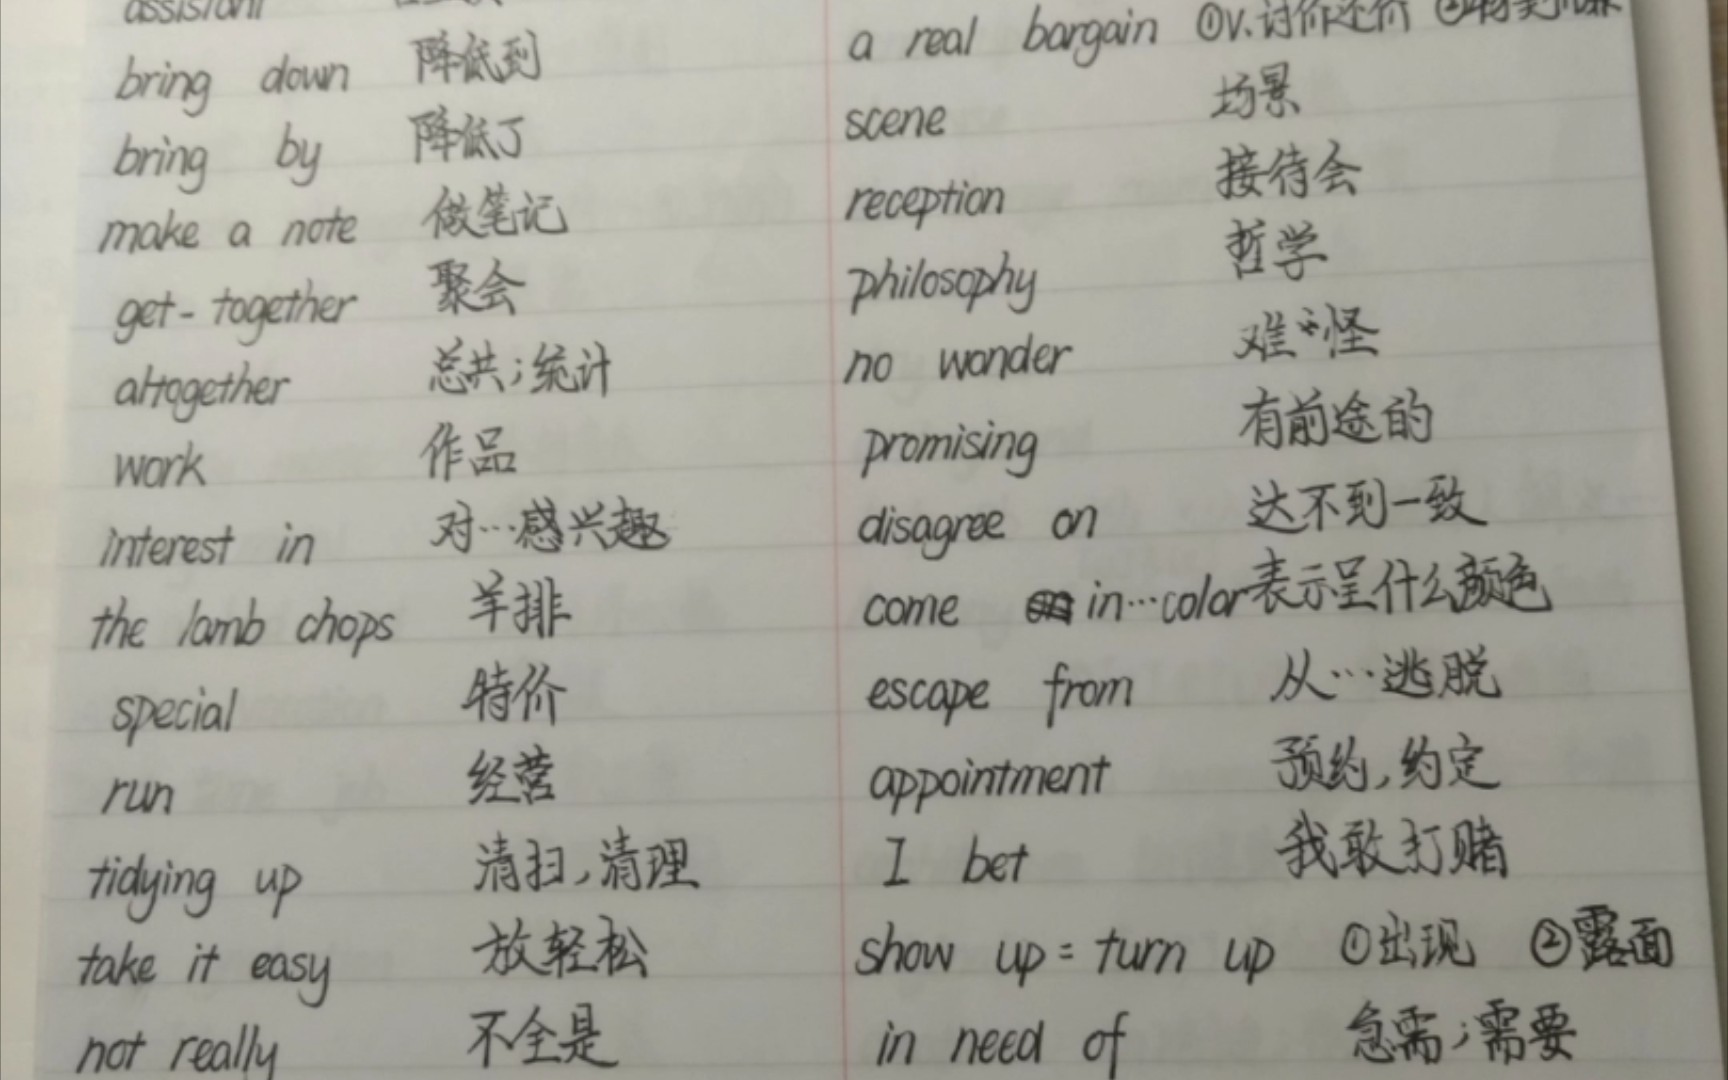 assistant
bring down 降低到
bring by 降低了
make a note 做笔记
get-together 聚会
altogether 总共;统计
work 作品
interest in 对…感兴趣
the lamb chops 羊排
special 特价
run 经营
tidying up 清扫,清理
take it easy 放轻松
not really 不全是
a real bargain ①v.讨价还价 ②
scene 场景
reception 接待会
philosophy 哲学
no wonder 难怪
promising 有前途的
disagree on 达不到一致
come in…color 表示呈什么颜色
escape from 从…逃脱
appointment 预约,约定
I bet 我敢打赌
show up = turn up ①出现 ②露面
in need of 急需;需要